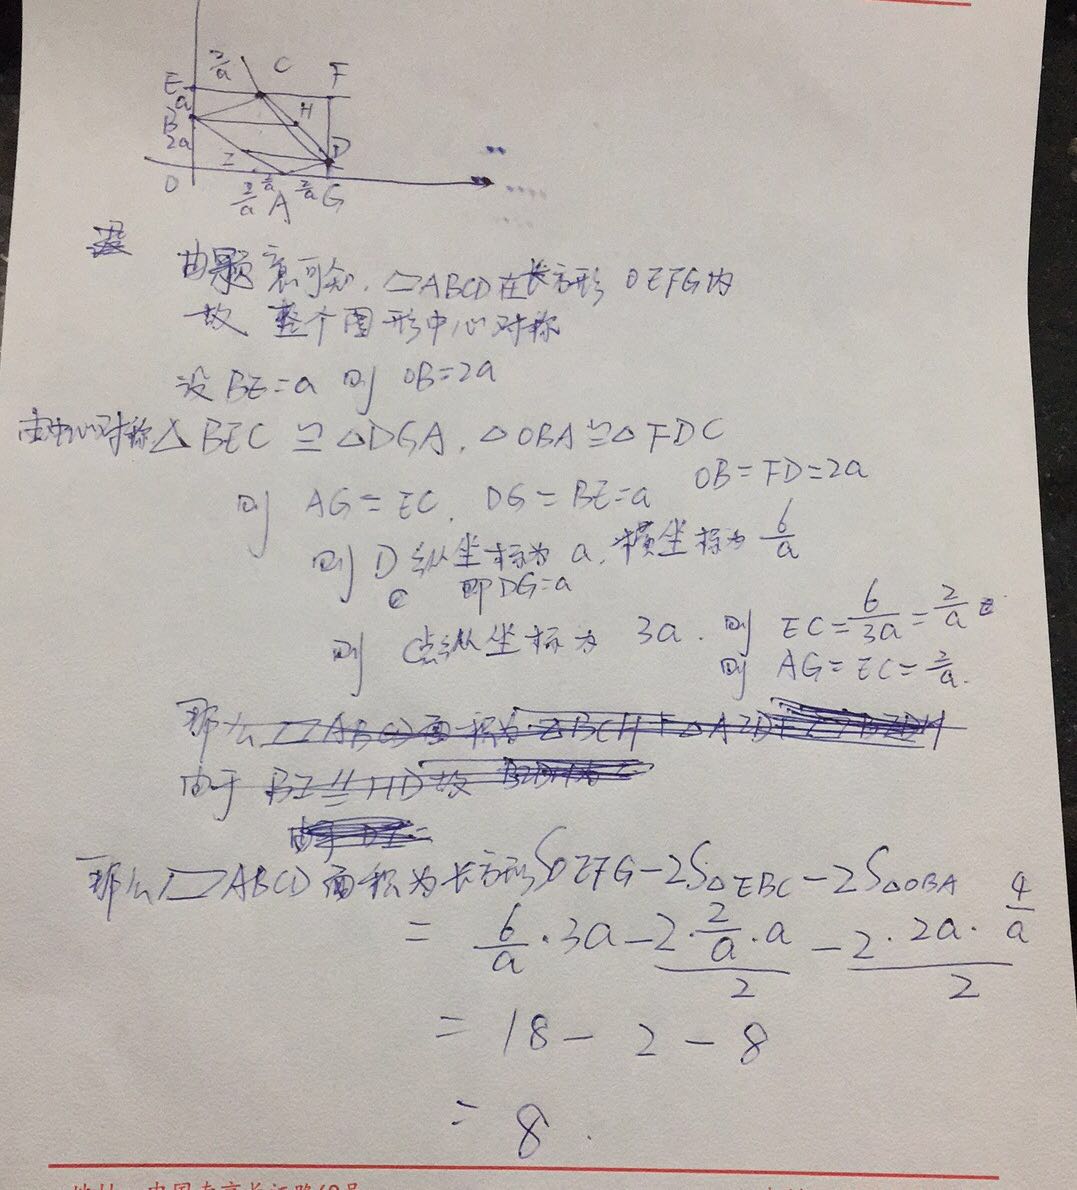 2/a C F
E
a
B H
2a
I D
O 2/a 2/a A 2/a G
由题意可知. ▱ABCD在长方形 OEFG内
故 整个图形中心对称
设 BE=a 则 OB=2a
由中心对称△BEC ≌ △DGA. △OBA≌△FDC
则 AG=EC. DG=BE=a OB=FD=2a
则 D 纵坐标为 a. 横坐标为 6/a
即DG=a
则 C点纵坐标为 3a. 则 EC=6/3a=2/a
则 AG=EC=2/a.
那么▱ABCD面积为 △BCH+△AID+▱BIDH
由于 BI∥HD故
那么▱ABCD面积为长方形S OEFG-2S△EBC-2S△OBA
= 6/a·3a-2·2/a·a/2-2·2a·4/a/2
= 18-2-8
= 8.